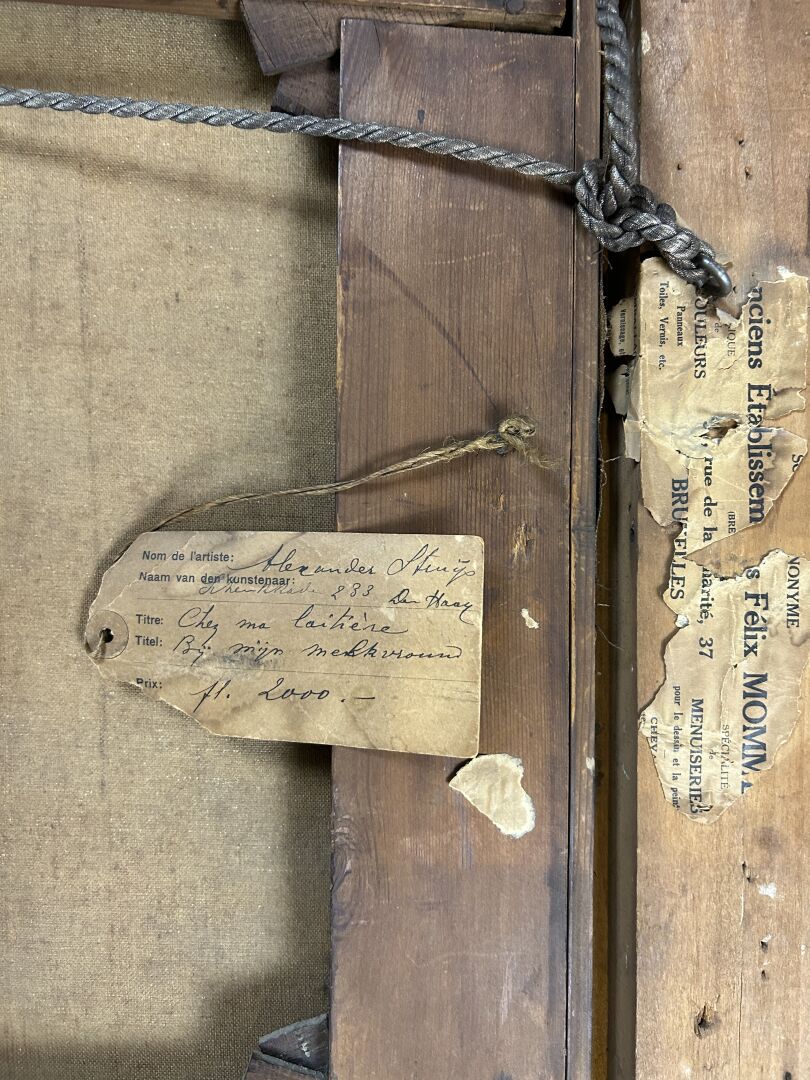 Nom de l'artiste: Alexander Struys
Naam van den kunstenaar: 233 Den Haag
Titre: Chez ma laitière
Titel: Bij mijn melkvrouw
Prix: fl. 2000.-
nciens Établissem s Félix MOMM
NONYME
IQUE
de
OULEURS
Panneaux
Toiles, Vernis, etc.
Vernissage, et
rue de la harité, 37
(BRE
BRUXELLES
SPÉCIALITÉ
de
MENUISERIES
pour le dessin et la peint
CHEVA